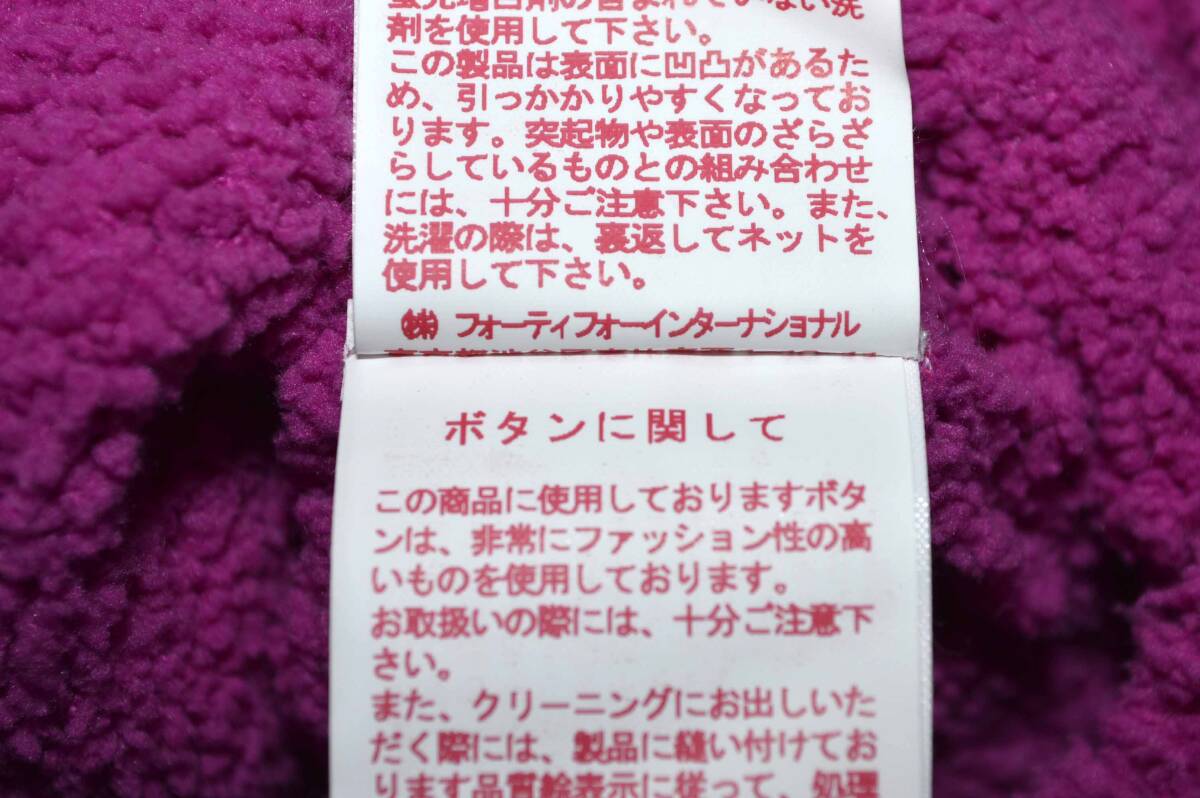 蛍光増白剤の含まれていない洗
剤を使用して下さい。
この製品は表面に凹凸があるた
め、引っかかりやすくなってお
ります。突起物や表面のざらざ
らしているものとの組み合わせ
には、十分ご注意下さい。また、
洗濯の際は、裏返してネットを
使用して下さい。
㈱ フォーティフォーインターナショナル
ボタンに関して
この商品に使用しておりますボタ
ンは、非常にファッション性の高
いものを使用しております。
お取扱いの際には、十分ご注意下
さい。
また、クリーニングにお出しいた
だく際には、製品に縫い付けてお
ります品質絵表示に従って、処理